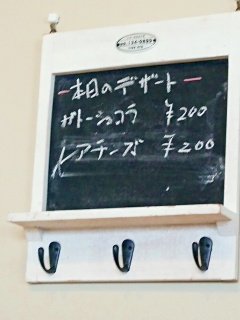 ー本日のデザートー
ガトーショコラ ¥200
レアチーズ ¥200